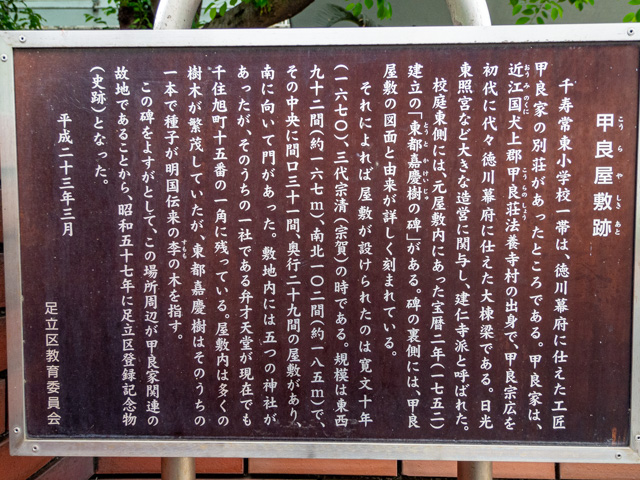 甲良屋敷跡
こうらやしきあと
千寿常東小学校一帯は、徳川幕府に仕えた工匠
甲良家の別荘があったところである。甲良家は、
近江国犬上郡甲良荘法養寺村の出身で、甲良宗広を
おうみのくに
こうらのしょう
初代に代々徳川幕府に仕えた大棟梁である。日光
東照宮など大きな造営に関与し、建仁寺派と呼ばれた。
校庭東側には、元屋敷内にあった宝暦二年(一七五二)
建立の「東都嘉慶樹の碑」がある。碑の裏側には、甲良
とうとかけいじゅ
屋敷の図面と由来が詳しく刻まれている。
それによれば屋敷が設けられたのは寛文十年
(一六七〇)、三代宗清(宗賀)の時である。規模は東西
九十二間(約一六七m)、南北一〇二間(約一八五m)で、
その中央に間口三十一間、奥行二十九間の屋敷があり、
南に向いて門があった。敷地内には五つの神社が
あったが、そのうちの一社である弁才天堂が現在でも
千住旭町十五番の一角に残っている。屋敷内は多くの
樹木が繁茂していたが、東都嘉慶樹はそのうちの
一本で種子が明国伝来の李の木を指す。
すもも
この碑をよすがとして、この場所周辺が甲良家関連の
故地であることから、昭和五十七年に足立区登録記念物
(史跡)となった。
平成二十三年三月
足立区教育委員会